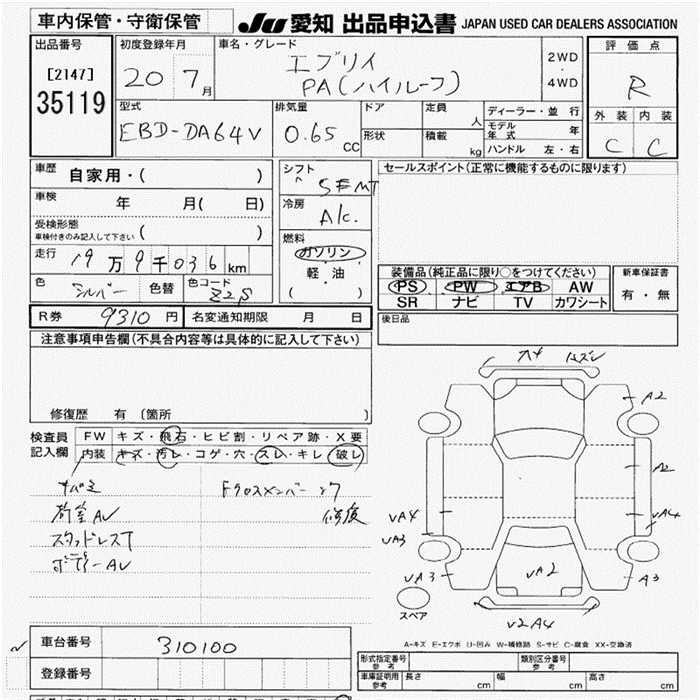 車内保管・守衛保管
JU 愛知 出品申込書 JAPAN USED CAR DEALERS ASSOCIATION
出品番号 初度登録年月 車名・グレード 評価点
[2147] 20 7月 エブリイ 2WD・4WD R
35119 PA(ハイルーフ)
型式 排気量 ドア 定員 人 ディーラー・並行 外装 内装
EBD-DA64V 0.65 cc 形状 積載 kg モデル年式 年 C C
ハンドル 左・右
車歴 自家用・( ) シフト SFMT セールスポイント(正常に機能するものに限ります)
車検 年 月( 日) 冷房 A/c.
受検形態
車検付きのみ記入して下さい ( ) 燃料
走行 19万9千036km ガソリン 装備品(純正品に限り○をつけてください) 新車保証書
色 シルバー 色替 色コード Z2S 軽・油 PS PW エアB AW 有・無
( ) SR ナビ TV カワシート
R券 9310円 名変通知期限 月 日 後日品
注意事項申告欄(不具合内容等は具体的に記入して下さい)
修復歴 有 〔箇所 〕
検査員 FW キズ・飛石・ヒビ割・リペア跡・X要
記入欄 内装 キズ・汚レ・コゲ・穴・スレ・キレ・破レ
荷室AV 修復
スタッドレスT
ボデーAV
A2
A2
vA4 vA4
vA3
vA3 vA2 A3
スペア v2A4
A-キズ E-エクボ U-凹み W-補修跡 S-サビ C-腐食 XX-交換済
車台番号 310100
登録番号
形式指定番号 参考 類別区分番号 参考
車庫証明用 参考 長さ cm 幅 cm 高さ cm